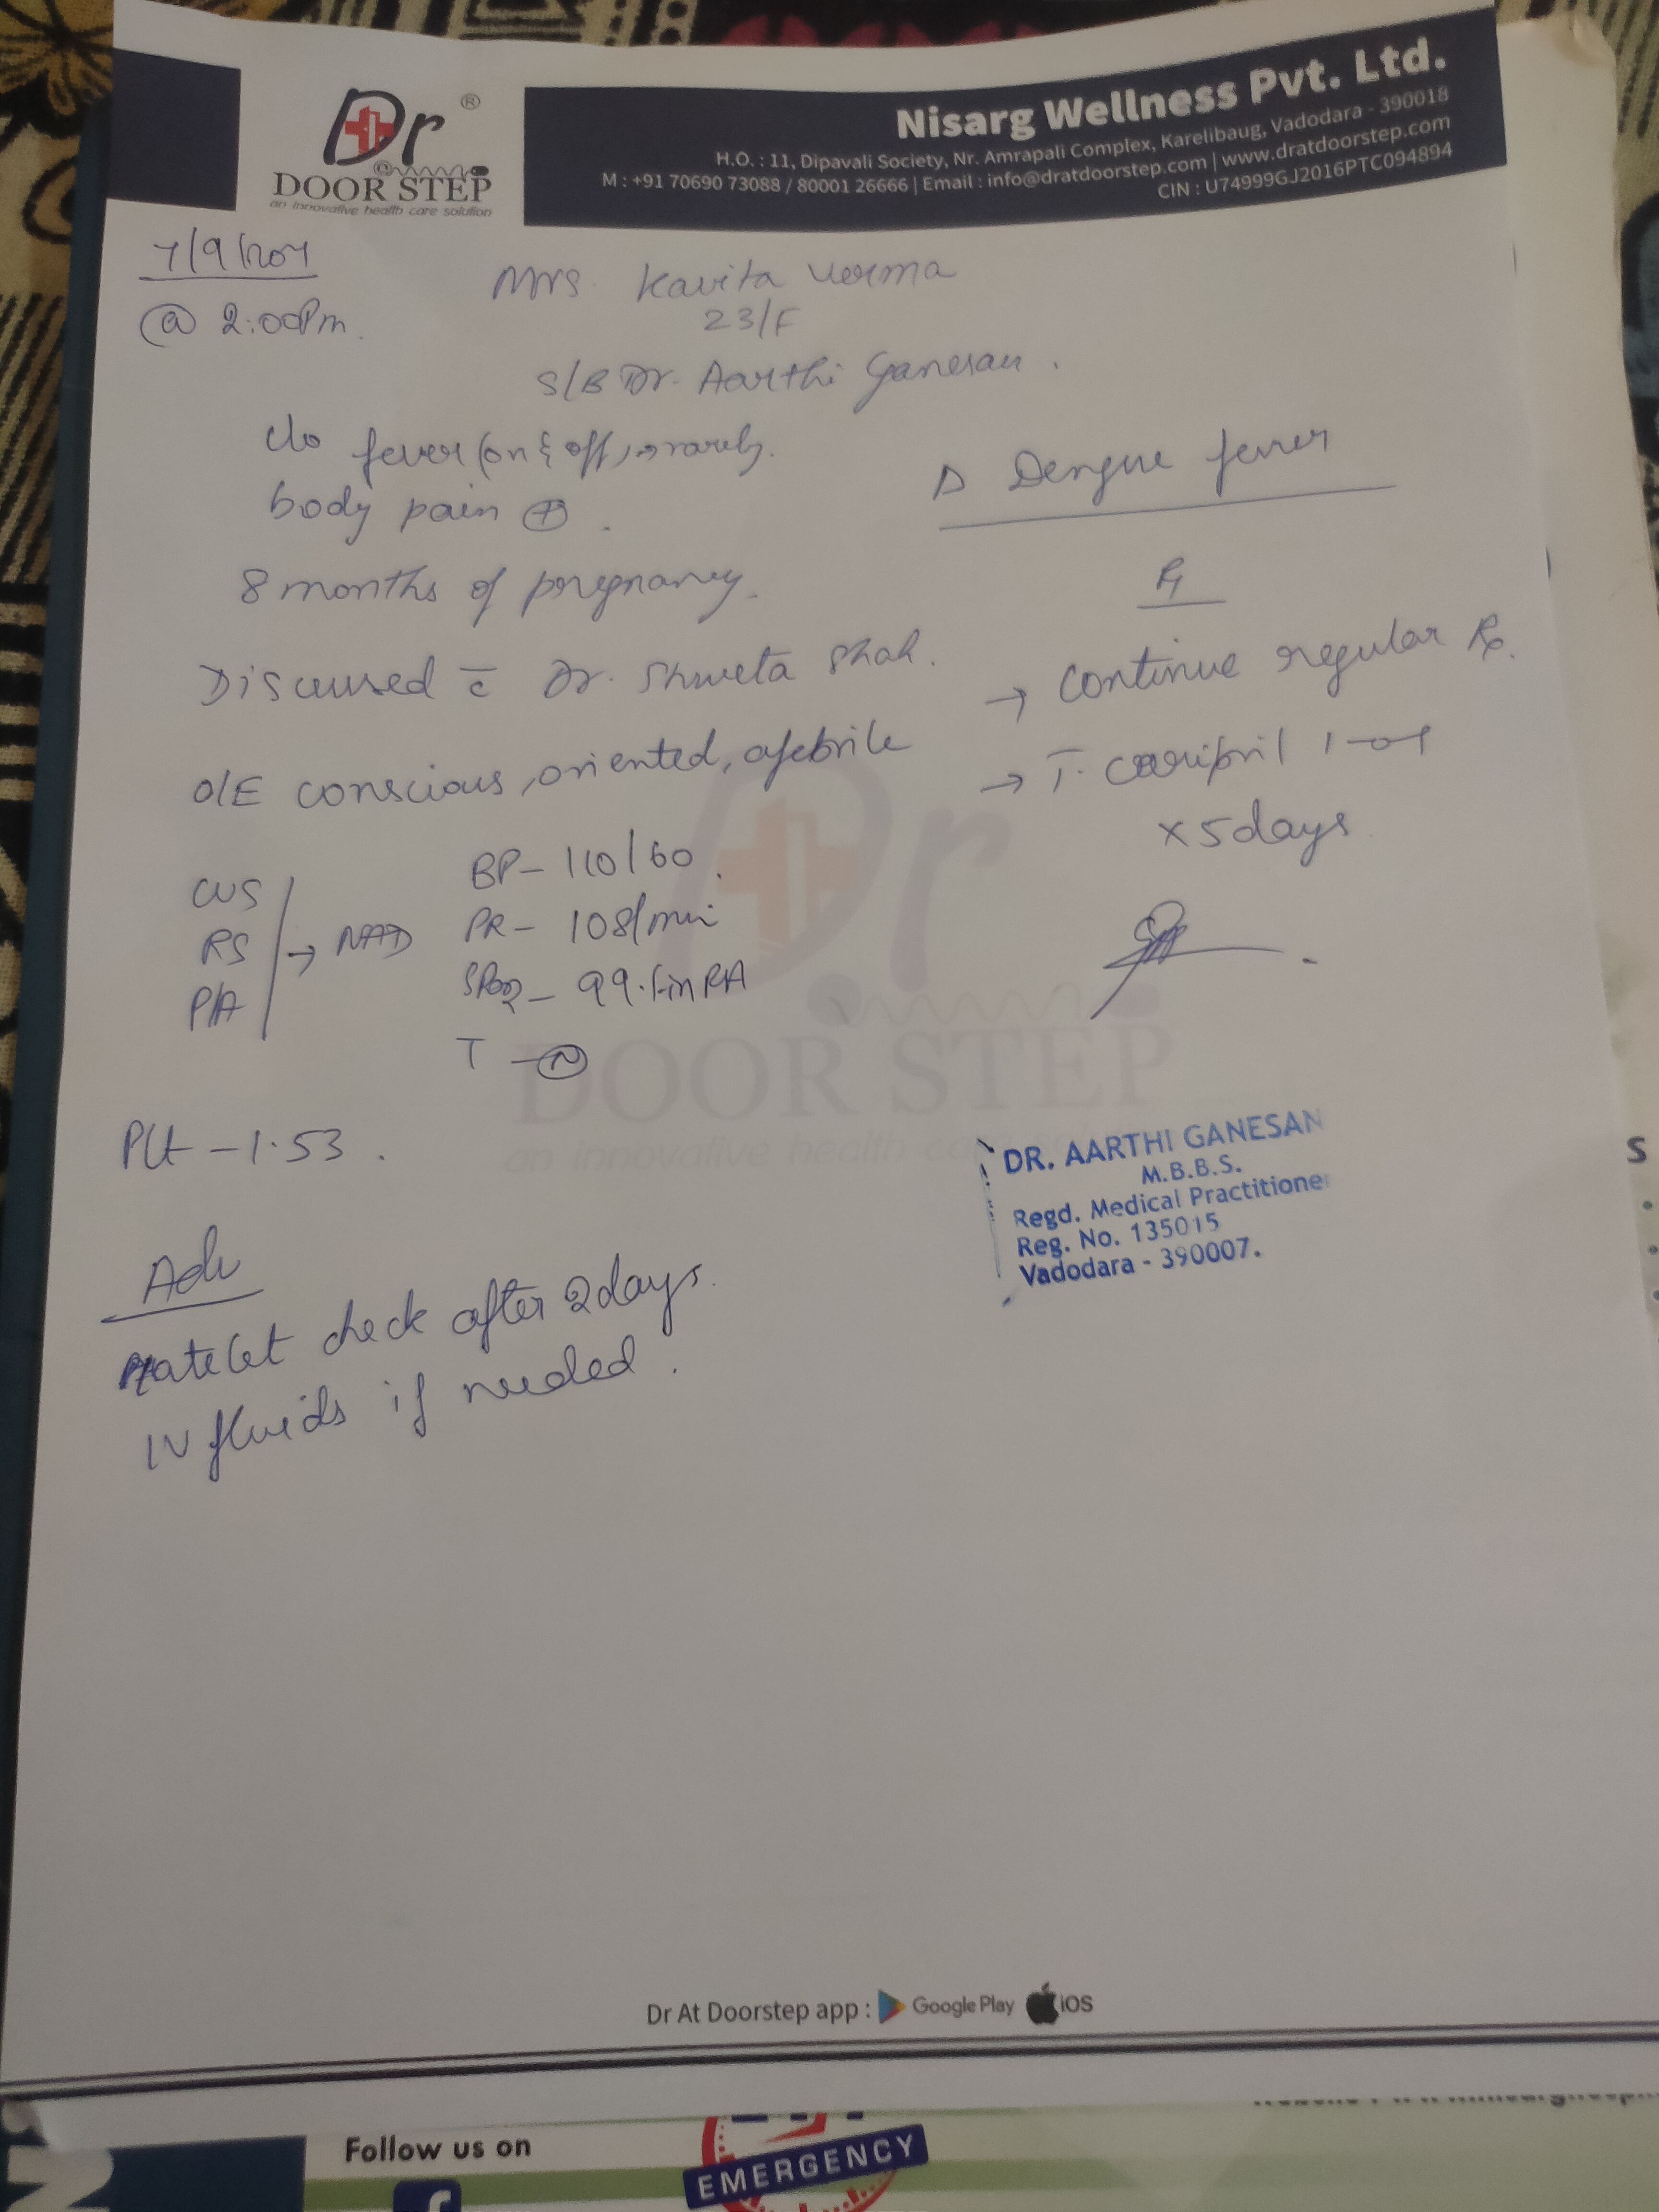 Dr ®
DOOR STEP
an innovative health care solution
Nisarg Wellness Pvt. Ltd.
H.O. : 11, Dipavali Society, Nr. Amrapali Complex, Karelibaug, Vadodara - 390018
M : +91 70690 73088 / 80001 26666 | Email : info@dratdoorstep.com | www.dratdoorstep.com
CIN : U74999GJ2016PTC094894
@ 2:00Pm.
Mrs. Kavita Verma
23/F
S/B Dr. Aarthi Ganesan.
c/o fever (on & off) → rarely.
body pain ⊕.
8 months of pregnancy.
Discussed c̄ Dr. Shweta Shah.
O/E conscious, oriented, afebrile
CVS
RS → NAD
P/A
BP - 110/60.
PR - 108/min
SPO2 - 99% in RA
T - Ⓝ
Plt - 1.53.
Adv
Platelet check after 2 days.
IV fluids if needed.
Δ Dengue fever
Rx
→ continue regular Rx.
→ T. caripil 1-0-1
x 5 days
Dr
DOOR STEP
an innovative health care solution
DR. AARTHI GANESAN
M.B.B.S.
Regd. Medical Practitioner
Reg. No. 135015
Vadodara - 390007.
Dr At Doorstep app : Google Play iOS
Follow us on
EMERGENCY